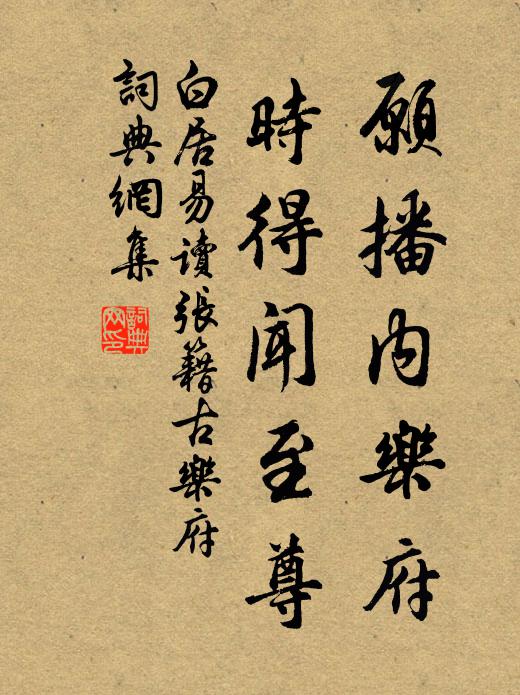 願播内樂府
時得聞至尊
白居易讀張籍古樂府
詞典網集
詞典
网印